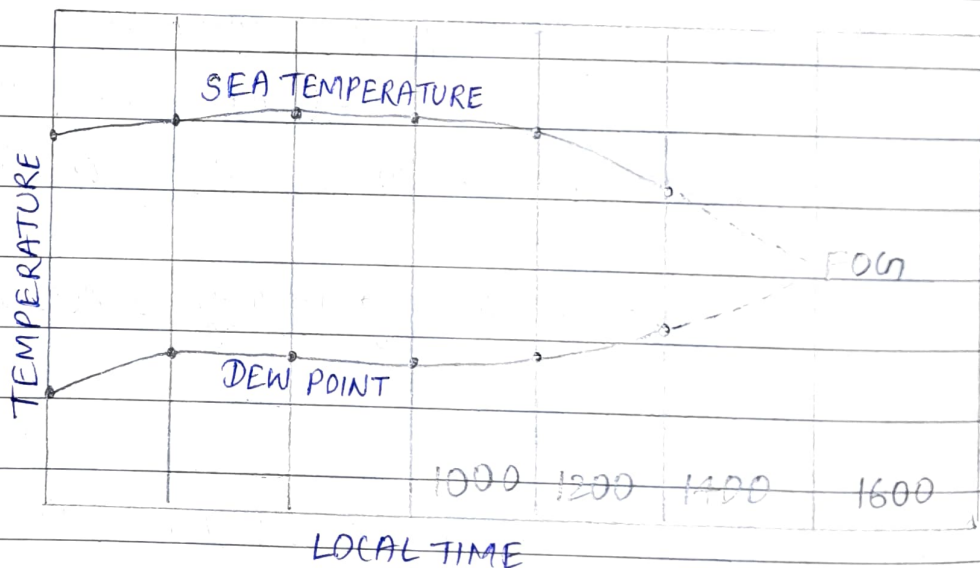 SEA TEMPERATURE
TEMPERATURE
FOG
DEW POINT
1000 1200 1400 1600
LOCAL TIME